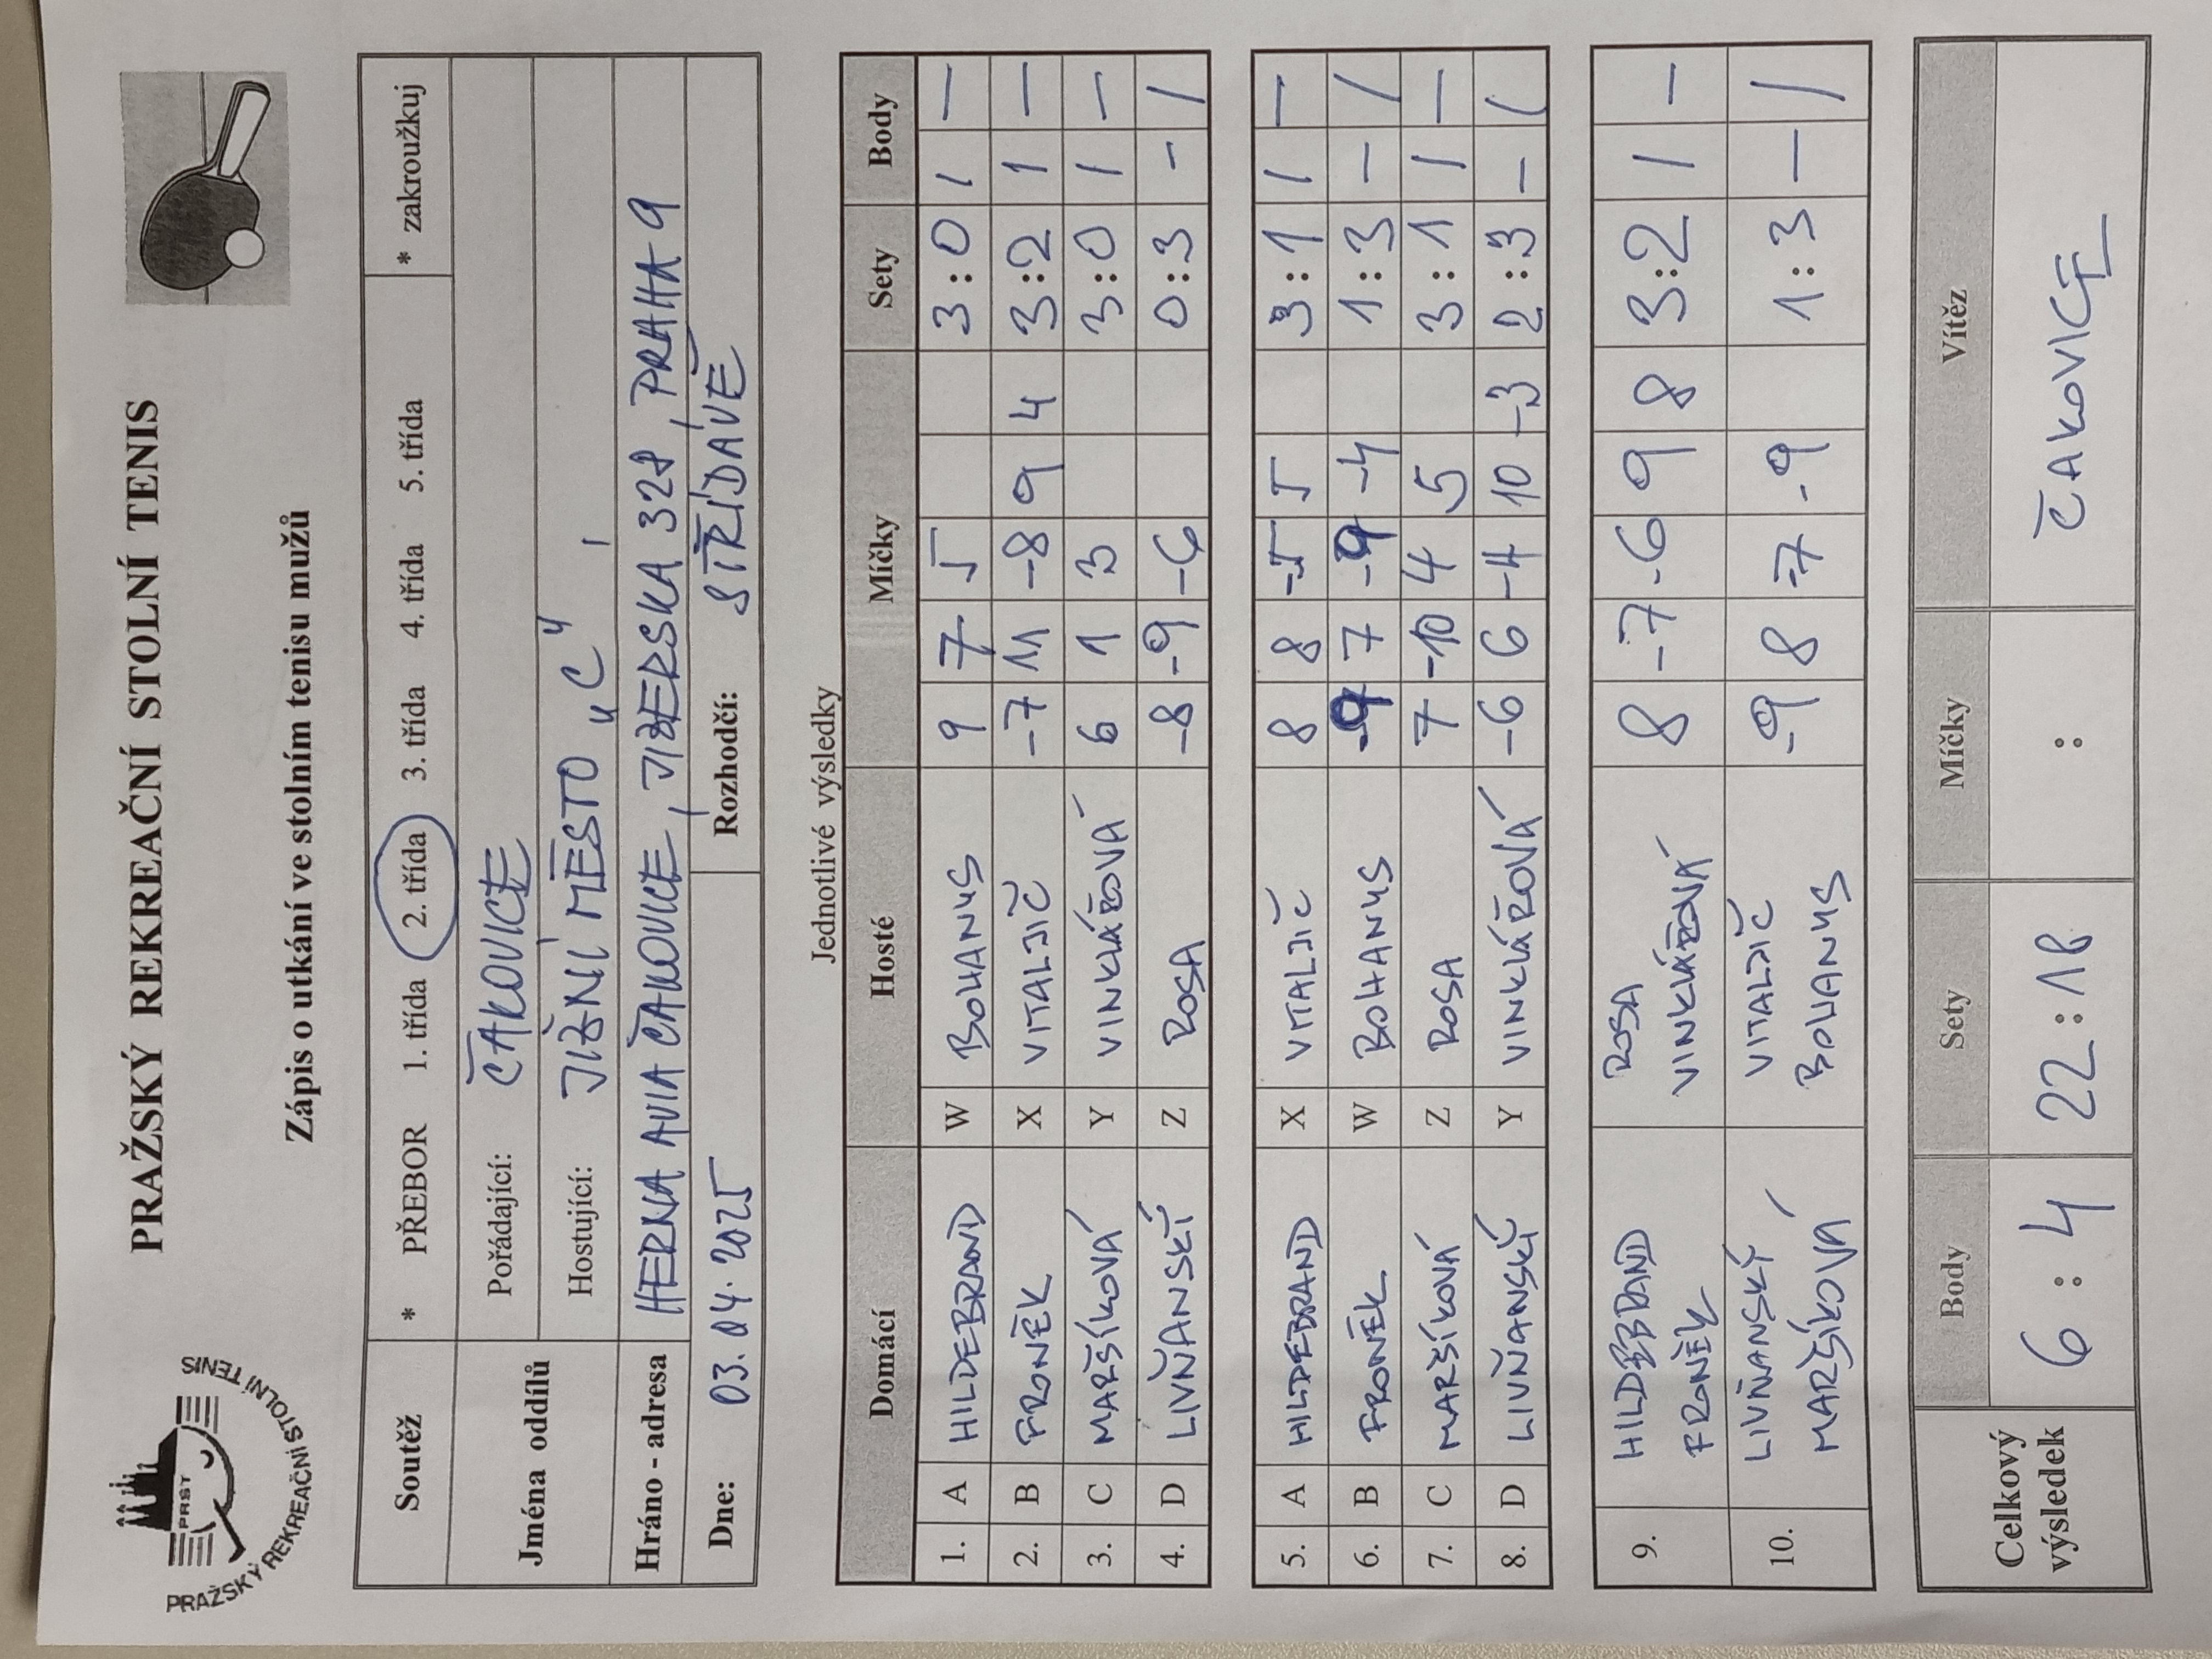 PRAŽSKÝ REKREAČNÍ STOLNÍ TENIS
PRST
PRAŽSKÝ REKREAČNÍ STOLNÍ TENIS
Zápis o utkání ve stolním tenisu mužů
Soutěž * PŘEBOR 1. třída 2. třída 3. třída 4. třída 5. třída * zakroužkuj
Jména oddílů Pořádající: ČAKOVICE
Hostující: JIŽNÍ MĚSTO „C"
Hráno - adresa HERNA AVIA ČAKOVICE, JIZERSKÁ 328, PRAHA 9
Dne: 03.04.2025 Rozhodčí: STŘÍDAVĚ
Jednotlivé výsledky
Domácí Hosté Míčky Sety Body
1. A HILDEBRAND W BOHANUS 9 7 5 3:0 1 –
2. B FRONĚK X VITALJIČ -7 11 -8 9 4 3:2 1 –
3. C MARŠÍKOVÁ Y VINKLÁŘOVÁ 6 1 3 3:0 1 –
4. D LIVŇANSKÝ Z ROSA -8 -9 -6 0:3 – 1
5. A HILDEBRAND X VITALJIČ 8 8 -5 5 3:1 1 –
6. B FRONĚK W BOHANUS -9 7 -9 -4 1:3 – 1
7. C MARŠÍKOVÁ Z ROSA 7 -10 4 5 3:1 1 –
8. D LIVŇANSKÝ Y VINKLÁŘOVÁ -6 6 -4 10 -3 2:3 – 1
9. HILDEBRAND ROSA 8 -7 -6 9 8 3:2 1 –
FRONĚK VINKLÁŘOVÁ
10. LIVŇANSKÝ VITALJIČ -9 8 -7 -9 1:3 – 1
MARŠÍKOVÁ BOHANUS
Celkový výsledek Body Sety Míčky Vítěz
6:4 22:18 : ČAKOVICE